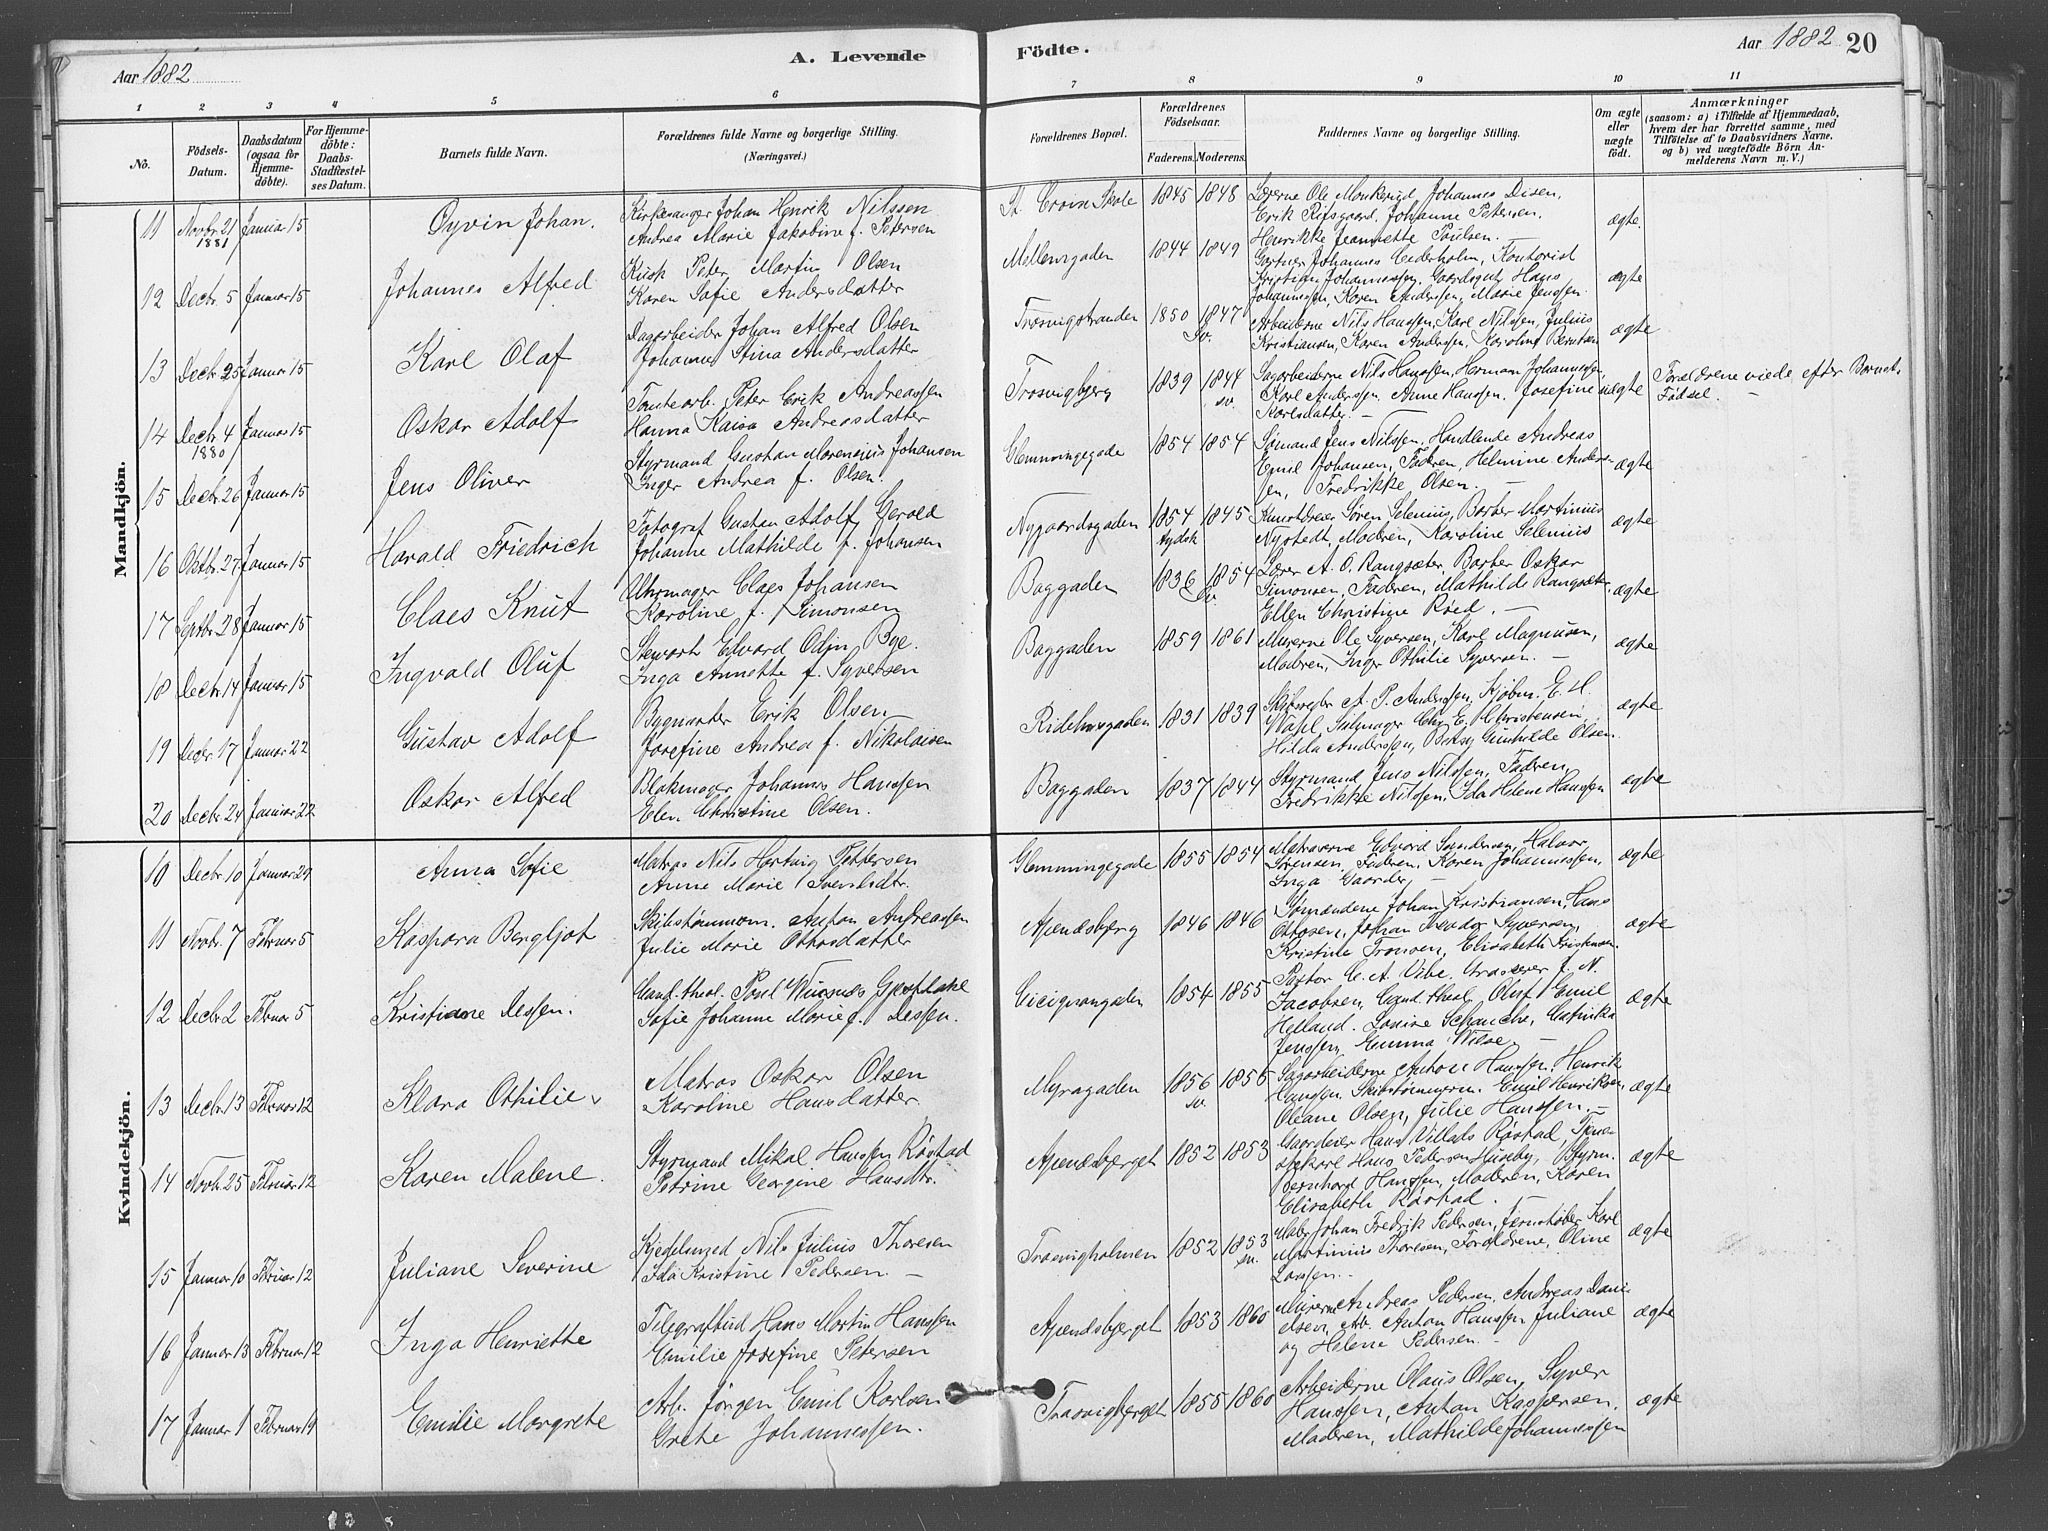 Aar 1882
A. Levende
Födte.
Aar 1882 20
1 2 3 4 5 6 7 8 9 10 11
No.
Födsels-Datum.
Daabsdatum (ogsaa for Hjemme-döbte).
For Hjemme-döbte: Daabs-Stadfæstel-ses Datum.
Barnets fulde Navn.
Forældrenes fulde Navne og borgerlige Stilling.
(Næringsvei.)
Forældrenes Bopæl.
Forældrenes Födselsaar.
Faderens. Moderens.
Faddernes Navne og borgerlige Stilling.
Om ægte eller uægte födt.
Anmærkninger
(saasom: a) i Tilfælde af Hjemmedaab, hvem der har forrettet samme, med Tilföielse af to Daabsvidners Navne, og b) ved uægtefödte Börn An-melderens Navn m. V.)
Mandkjön.
11 Novbr. 21 1881 Januar 15 Øyvin Johan.
Kirkesanger Johan Henrik Nilssen
Andrea Marie Jakobine f. Petersen
St. Croix Skole 1845 1848
Lærerne Ole Monkerød Johannes Disen,
Erik Rifsgaard, Johanne Petersen,
Henrikke Jeannette Poulsen. —
ægte.
12 Decbr. 5 Januar 15 Johannes Alfred
Kusk Peter Martin Olsen
Karen Sofie Andersdatter
Mellemgaden 1844 1849
Gartner Johannes Cederholm, Kontorist
Kristian Johannessen, Gaardsgut Hans
Johannessen, Karen Andersen, Marie Jenssen.
ægte
13 Decbr. 25 Januar 15 Karl Olaf
Dagarbeider Johan Alfred Olsen
Johanne Stina Andersdatter
Trosvigstranden 1850 1847 Sv.
Arbeiderne Nils Hanssen, Karl Nilssen, Julius
Kristiansen, Karen Anderssen, Karoline Berntsen
ægte
14 Decbr. 4 1880 Januar 15 Oskar Adolf
Tomtearb. Peter Erik Andreassen
Hanna Kaisa Andreasdatter
Trosvigbjerg 1839 1844 sv.
Sagarbeiderne Nils Hanssen, Herman Johannessen,
Karl Anderssen, Anne Hanssen, Josefine
Karlsdatter. —
uægte
Forældrene viede efter Barnets
Födsel. —
15 Decbr. 26 Januar 15 Jens Oliver
Styrmand Gustav Marenius Johansen
Inger Andrea f. Olsen.
Glemmingegade 1854 1854
Sømand Jens Nilssen, Handlende Andreas
Emil Johansen, Faderen, Helmine Anders-
en, Fredrikke Olsen. —
ægte
16 Oktbr. 27 Januar 15 Harald Friedrich
Fotograf Gustav Adolf Gerold
Johanne Mathilde f. Johansen
Nygaardsgaden 1854 tydsk 1845
Kunstdreier Søren Selenius, Barber Martinius
Nystedt, Moderen, Karoline Selenius
ægte
17 Septbr. 28 Januar 15 Claes Knut
Uhrmager Claes Johansen
Karoline f. Simonsen
Baggaden 1836 Sv. 1854
Lærer A. O. Rangsæter, Barber Oskar
Simonsen, Faderen, Mathilde Rangsæter,
Ellen Christine Røed. —
ægte
18 Decbr. 14 Januar 15 Ingvald Oluf
Stewart Edvard Odin Bye.
Inga Annette f. Syversen
Baggaden 1859 1861
Murerne Ole Syversen, Karl Magnusen,
Moderen, Inger Othilie Syversen. —
ægte
19 Decbr. 17 Januar 22 Gustav Adolf
Bygmester Erik Olsen
Josefine Andrea f. Nikolaisen
Ridehusgaden 1831 1839
Skibsreder A. P. Anderssen, Kjøbm. E. H.
Wahl, Seilmager Chr. E. Christensen,
Hilda Anderssen, Betsy Gunhilde Olsen.
ægte
20 Decbr. 24 Januar 22 Oskar Alfred
Blokmager Johannes Hanssen
Elen Christine Olsen.
Baggaden 1837 1844
Styrmand Jens Nilssen, Faderen,
Fredrikke Nilssen, Ida Helene Hanssen
ægte
Kvindekjön.
10 Decbr. 10 Januar 29 Anna Sofie
Matros Nils Hertvig Pettersen
Anne Marie Svendsdtr.
Glemmingegade 1855 1854
Matroserne Edvard Gundersen, Halvor
Sørensen, Faderen, Karen Johannessen,
Inga Gaarder. —
ægte
11 Novbr. 7 Februar 5 Kaspara Bergljot
Skibstømmerm. Anton Andreassen
Julie Marie Ottosdatter
Apenæsbjerg 1846 1846
Sømændene Johan Kristiansen, Hans
Ottosen, Johan Teodor Syversen,
Kristine Tronsen, Elisabeth Kristiansen.
ægte
12 Decbr. 2 Februar 5 Kristiane Dessen.
Cand. theol. Poul Wursnes Gjestlake
Sofie Johanne Marie f. Dessen.
Cicignongaden 1854 1855
Pastor C. A. Vibe, Grosserer J. N.
Jacobsen, Cand. theol. Oluf Emil
Helland, Louise Schanche, Cathrika
Jenssen, Emma Wilse. —
ægte
13 Decbr. 13 Februar 12 Klara Othilie
Matros Oskar Olsen
Karoline Hansdatter
Myragaden 1856 sv. 1856
Sagarbeiderne Anton Hanssen, Henrik
Hanssen, Skibstømmerm. Emil Henriksen,
Oleane Olsen, Julie Hanssen. —
ægte
14 Novb. 25 Februar 12 Karen Malene.
Styrmand Mikal Hanssen Røstad
Petrine Georgine Hansdtr.
Apenæsbjerget 1852 1853
Gaardeier Hans Villads Røstad, Tjene-
stekarl Hans Pedersen Huseby, Styrm.
Bernhard Hanssen, Moderen, Karen
Elisabeth Røstad.
ægte
15 Januar 10 Februar 12 Juliane Severine
Kjedelsmed Nils Julius Thoresen
Ida Kristine Pedersen —
Trosvigholmen 1852 1853 sv.
Maler Johan Fredrik Pedersen, Jernstøber Karl
Martinius Thoresen, Forældrene, Oline
Larssen. —
ægte
16 Januar 13 Februar 12 Inga Henriette
Telegrafbud Hans Martin Hanssen
Emilie Josefine Petersen
Apenæsbjerget 1853 1860
Murerne Andreas Pedersen, Andreas Dani-
elsen, Arb. Anton Hanssen Juliane
og Helene Pedersen. —
ægte
17 Januar 1 Februar 19 Emilie Margrete
Arb. Jörgen Emil Karlsen
Grete Johannessen.
Trosvigbjerget 1855 1860
Arbeiderne Olaus Olsen, Syver
Hanssen, Anton Kaspersen,
Moderen, Mathilde Johannessen
ægte